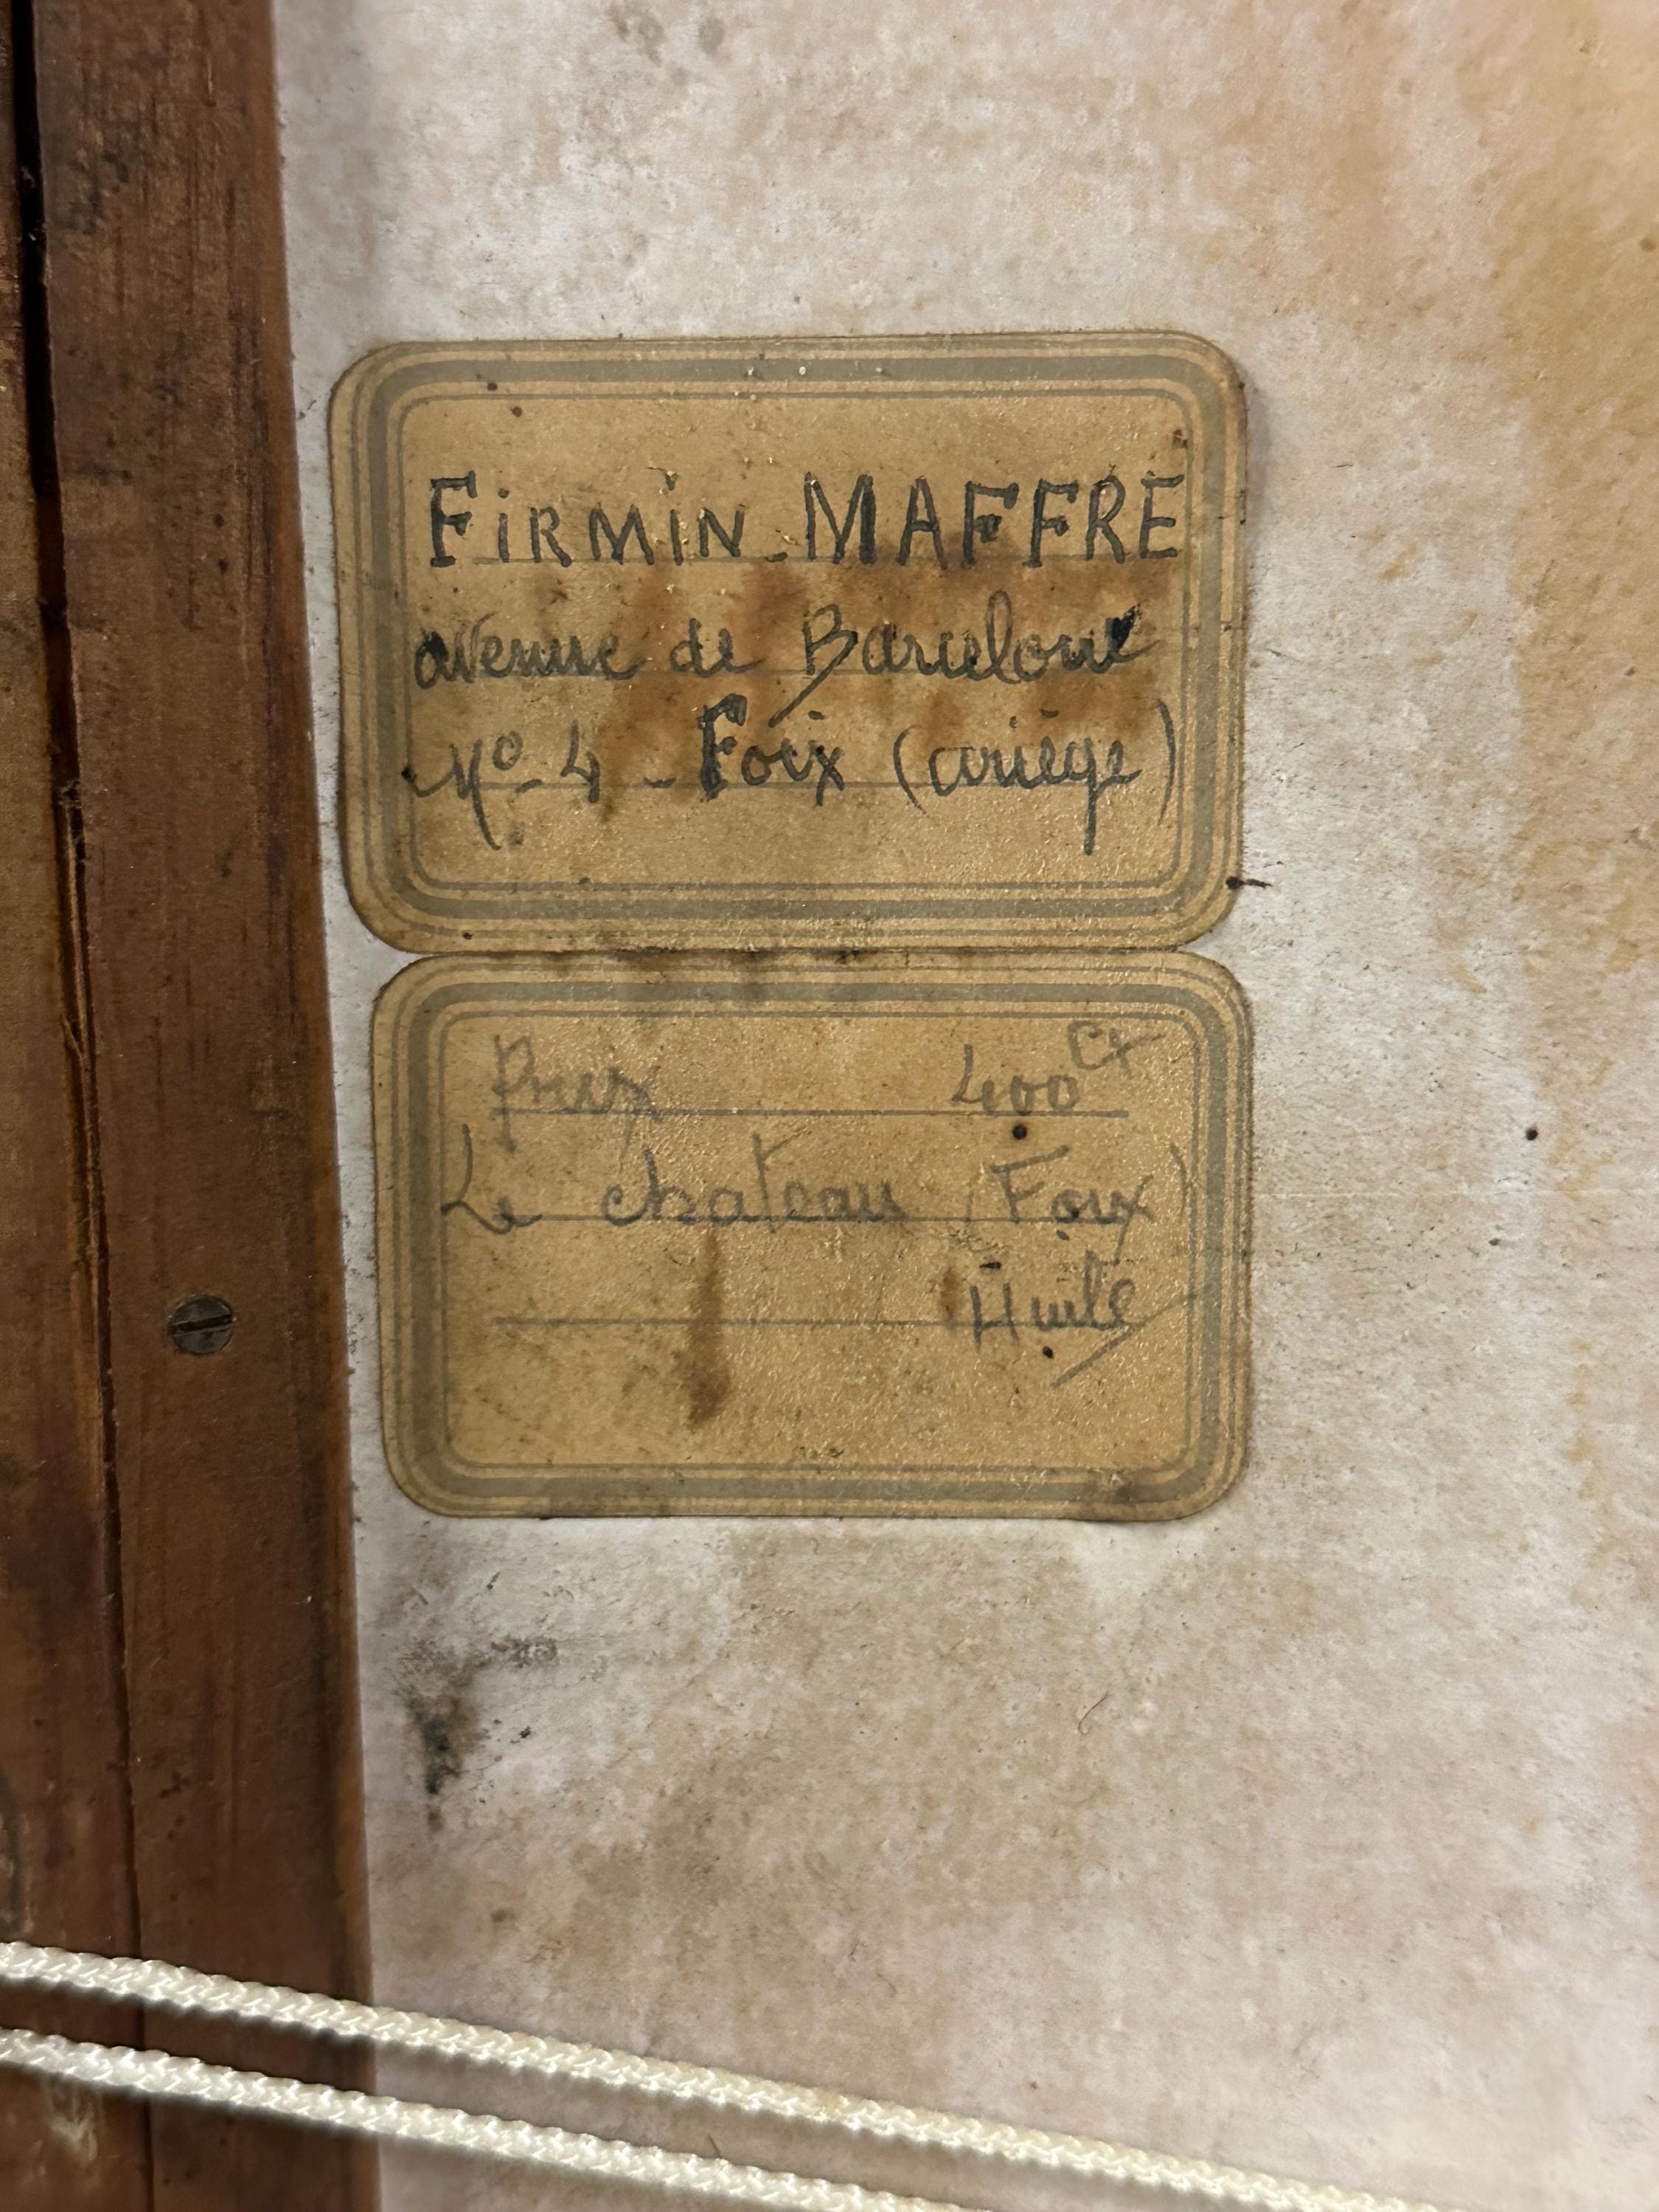 FiRMiN - MAFFRE
avenue de Barcelone
No - 4 - Foix (ariège)
Prix 400
Le chateau (Foix)
Huile